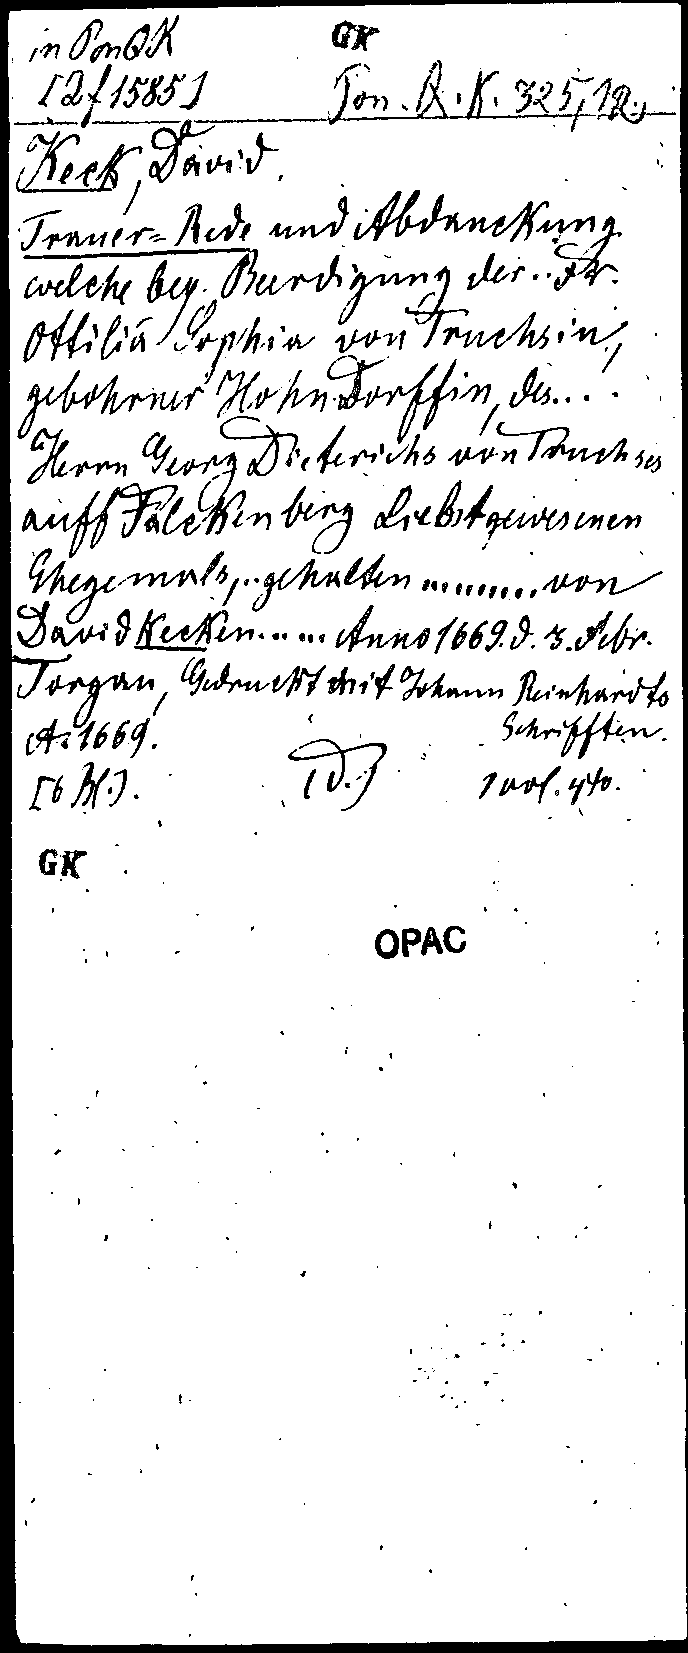 in Pon QK
GK
[2f 1585]
Pon. Q. K. 325, 12.
Keck, David.
Trauer-Rede und Abdanckung
welche bey. Beerdigung der.. Fr.
Ottiliä Sophia von Truchsin,
gebohrner Hohndorffin, des....
Herrn Georg Dieterichs von Truchses
auff Falckenberg Liebstgewesenen
Ehegemals,.. gehalten ......... von
David Kecken...... Anno 1669. d. 3. Febr.
Torgau, Gedruckt mit Johann Reinhardts
A: 1669. Schrifften.
[6 Bl.]. (D.) 1 vol. 4to.
GK
OPAC